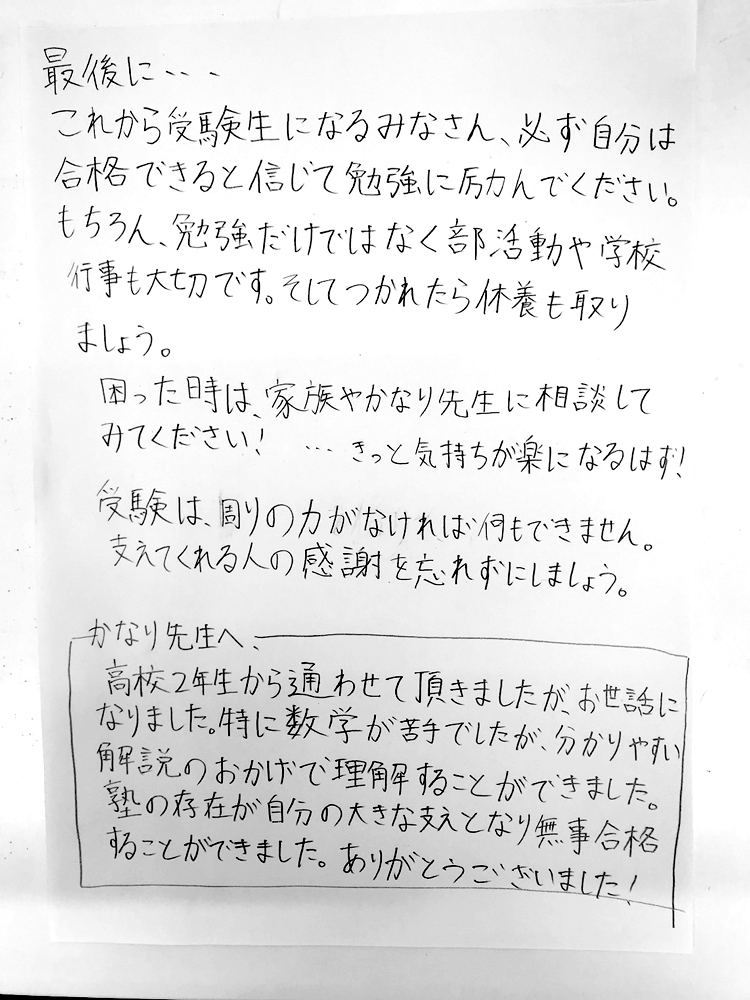 最後に・・・
これから受験生になるみなさん、必ず自分は
合格できると信じて勉強に励んでください。
もちろん、勉強だけではなく部活動や学校
行事も大切です。そしてつかれたら休養も取り
ましょう。
困った時は、家族やかなり先生に相談して
みてください! …きっと気持ちが楽になるはず!
受験は、周りの力がなければ何もできません。
支えてくれる人の感謝を忘れずにしましょう。
かなり先生へ、
高校2年生から通わせて頂きましたが、お世話に
なりました。特に数学が苦手でしたが、分かりやすい
解説のおかげで理解することができました。
塾の存在が自分の大きな支えとなり無事合格
することができました。ありがとうございました!